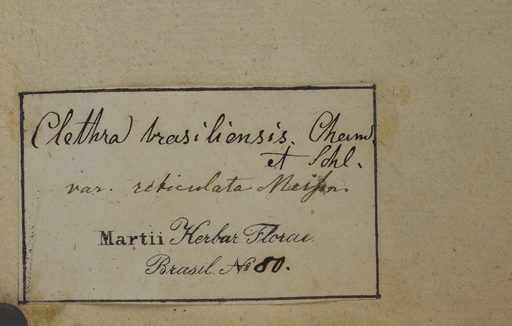 Clethra brasiliensis. Cham.
et Schl.
var. reticulata Meißn.
Martii Herbar. Florae
Brasil. No 80.